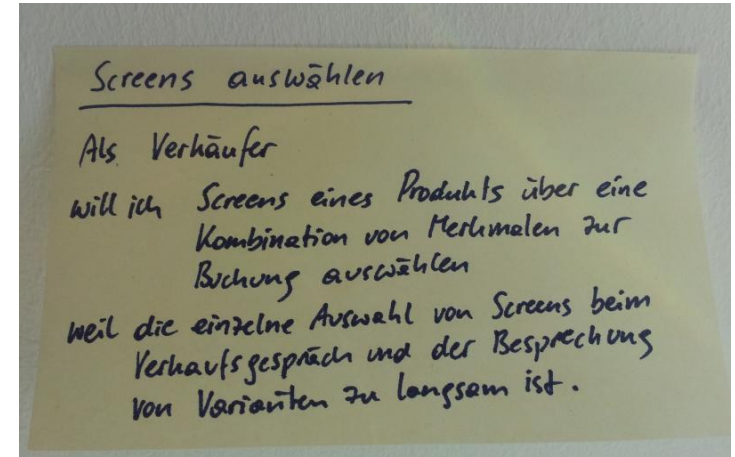 Screens auswählen
Als Verkäufer
will ich Screens eines Produkts über eine
Kombination von Merkmalen zur
Buchung auswählen
weil die einzelne Auswahl von Screens beim
Verkaufsgespräch und der Besprechung
von Varianten zu langsam ist.